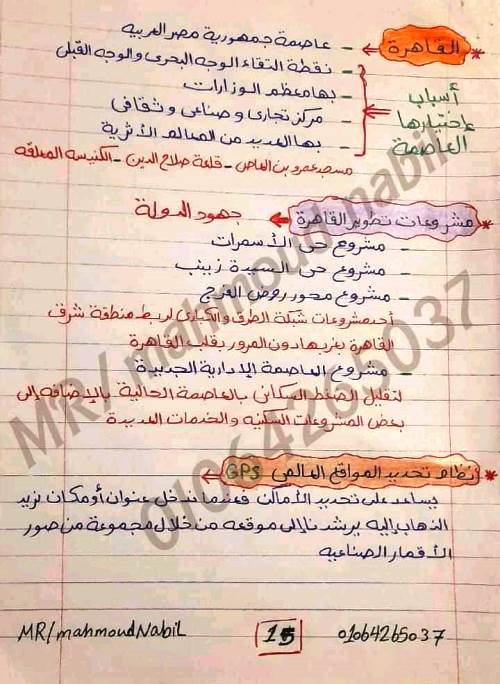 * القاهرة ← - عاصمة جمهورية مصر العربية
أسباب إختيارها العاصمة ←
- نقطة التقاء الوجه البحرى والوجه القبلى
- بها معظم الوزارات
- مركز تجارى و صناعى و ثقافى
- بها العديد من المعالم الأثرية
مسجد عمرو بن العاص - قلعة صلاح الدين - الكنيسه المعلقه
* مشروعات تطوير القاهرة ← جهود الدولة
- مشروع حى الأسمرات
- مشروع حى السيدة زينب
- مشروع محور روض الفرج
أحد مشروعات شبكة الطرق والكبارى لربط منطقة شرق
القاهرة بغربها دون المرور بقلب القاهرة
- مشروع العاصمة الإدارية الجديدة
لتقليل الضغط السكانى بالعاصمة الحالية بالإضافه إلى
بعض المشروعات السكنيه والخدمات العديدة
* نظام تحديد المواقع العالمى GPS ←
يساعد على تحديد الأماكن فعندما ندخل عنوان أو مكان نريد
الذهاب إليه يرشدنا إلى موقعه من خلال مجموعة من صور
الأقمار الصناعيه
MR/mahmoud nabil
01064265037
MR/mahmoudNabiL 15 01064265037